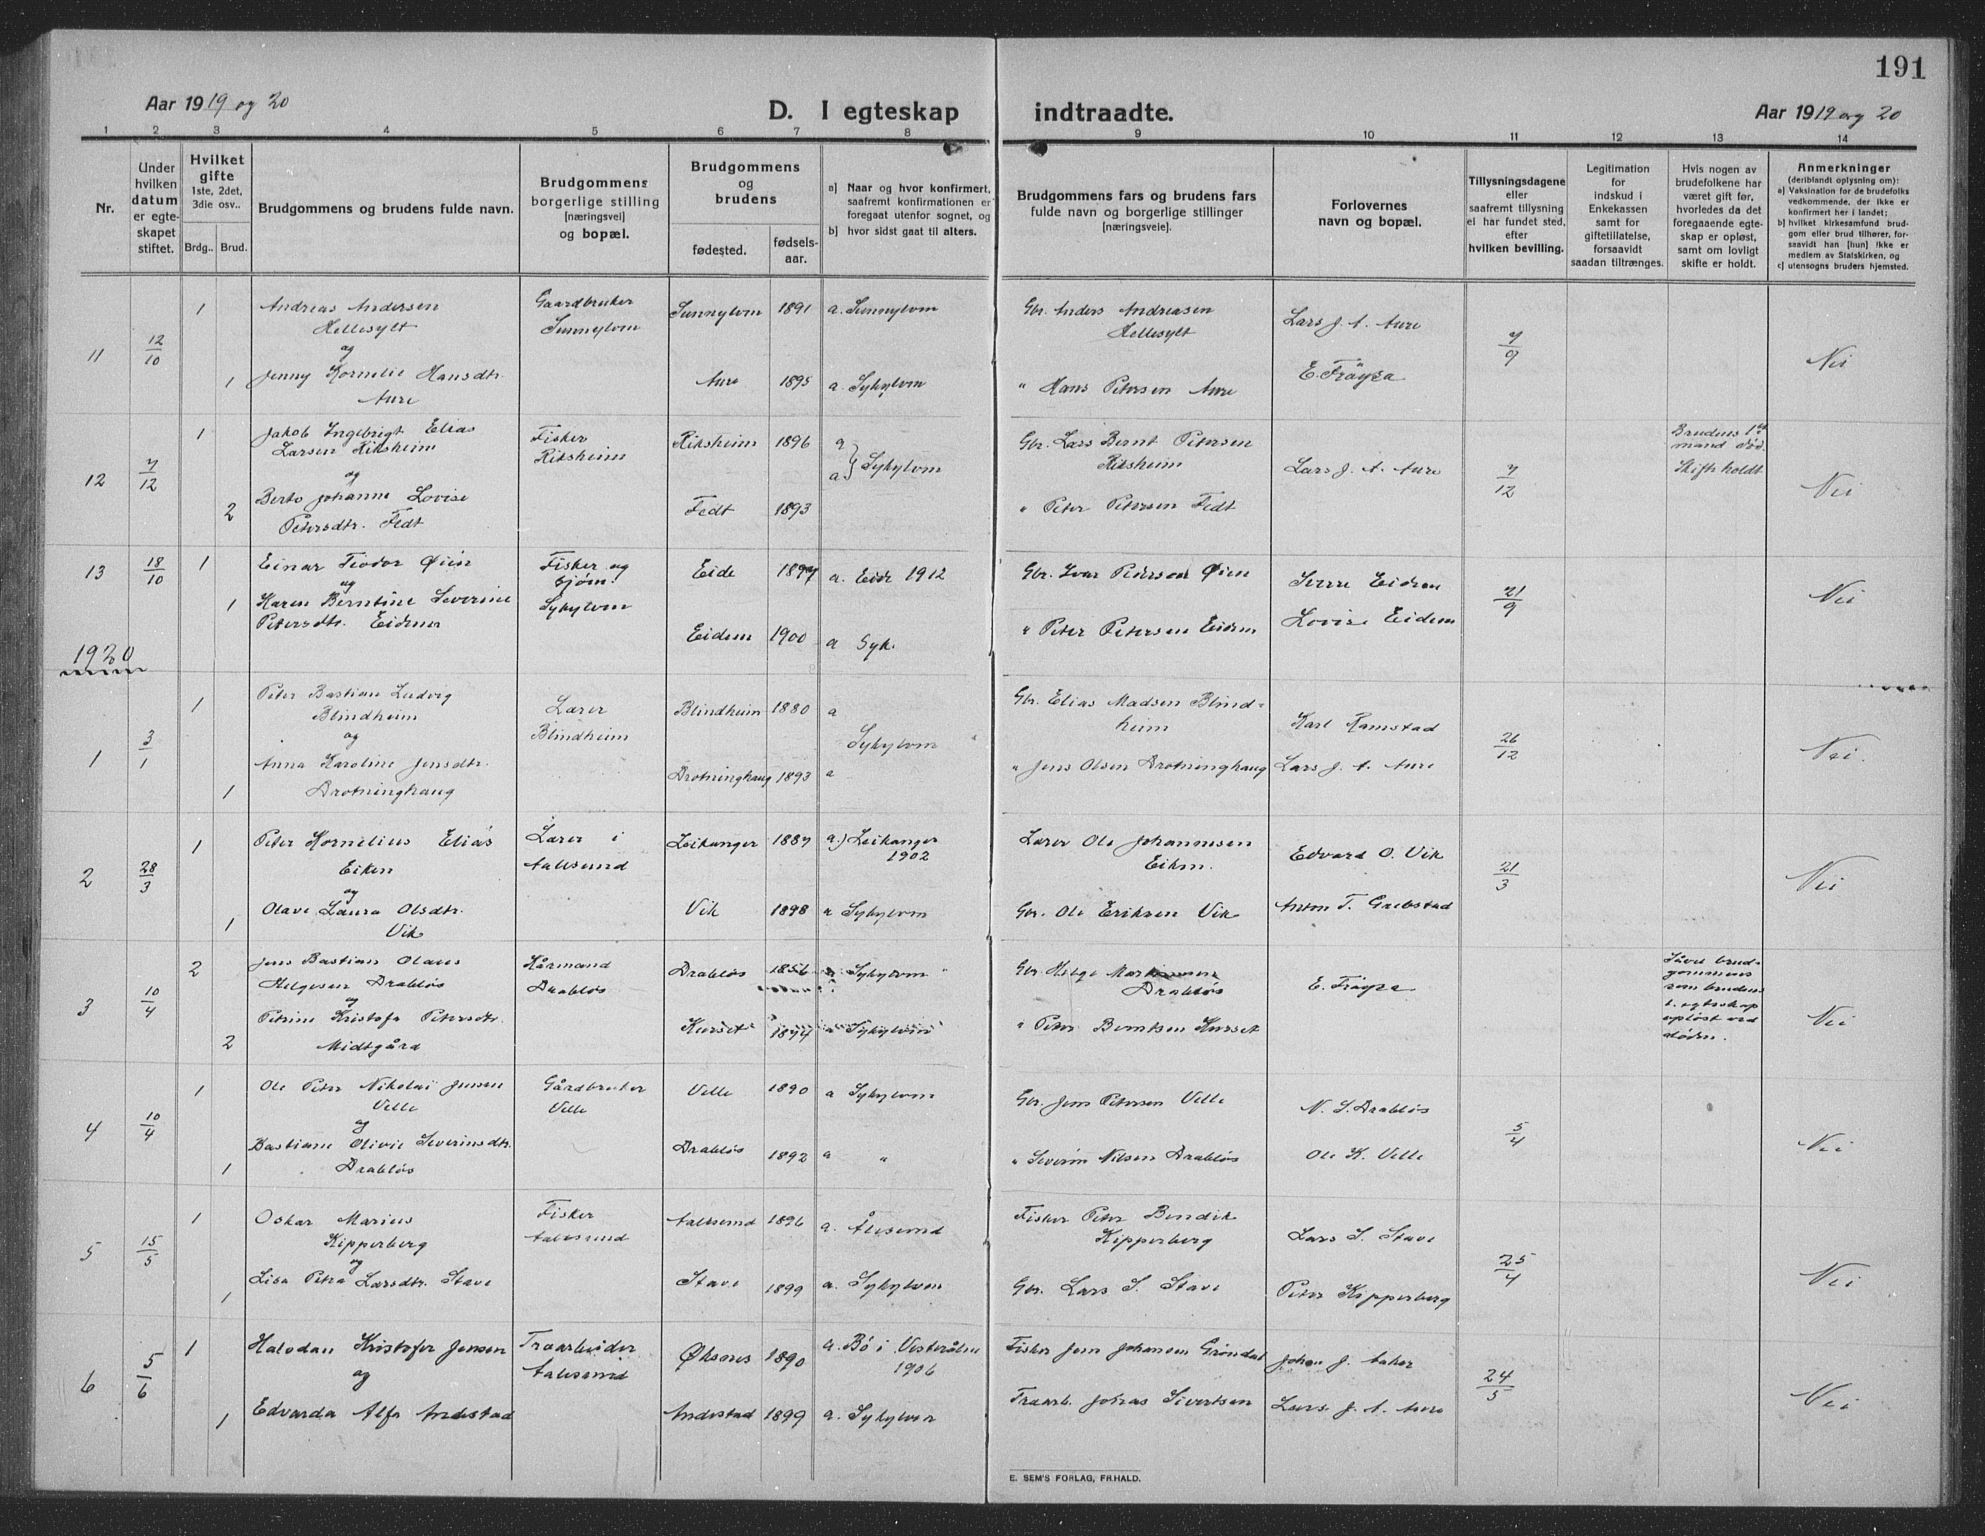 191
Aar 1919 og 20
D. I egteskap indtraadte.
Aar 1919 og 20
1 2 3 4 5 6 7 8 9 10 11 12 13 14
Nr.
Under hvilken datum er egteskapet stiftet.
Hvilket gifte 1ste, 2det, 3die osv..
Brdg.. Brud.
Brudgommens og brudens fulde navn.
Brudgommens borgerlige stilling [næringsvei] og bopæl.
Brudgommens og brudens
fødested. fødselsaar.
a) Naar og hvor konfirmert, saafremt konfirmationen er foregaat utenfor sognet, og
b) hvor sidst gaat til alters.
Brudgommens fars og brudens fars fulde navn og borgerlige stillinger [næringsveie].
Forlovernes navn og bopæl.
Tillysningsdagene eller saafremt tillysning ei har fundet sted, efter hvilken bevilling.
Legitimation for indskud i Enkekassen samt for giftetillatelse, forsaavidt saadan tiltrænges.
Hvis nogen av brudefolkene har været gift før, hvorledes da det foregaaende egteskap er opløst, samt om lovligt skifte er holdt.
Anmerkninger (deriblandt oplysning om): a) Vaksination for de brudefolks vedkommende, der ikke er konfirmert her i landet; b) hvilket kirkesamfund brudgom eller brud tilhører, forsaavidt han [hun] ikke er medlem av Statskirken, og c) utensogns bruders hjemsted.
11 12/10 1 Andreas Andersen Gaardbruker Sunnylven 1891 a. Sunnylven Gbr. Anders Andreasen Lars J. A. Aure 7/9 Nei
Hellesylt Sunnylven Hellesylt
og
1 Jenny Kornelie Hansdtr. Aure 1895 a. Sykylven " Hans Petersen Aure E. Frøysa
Aure
12 7/12 1 Jakob Ingebrigt Elias Fisker Riksheim 1896 a Sykylven Gbr. Lars Bernt Petersen Lars J. A. Aure 7/12 Brudens 1ste Nei
Larsen Riksheim Riksheim Riksheim mand død.
og a Skifte holdt
2 Johanne Lovise Fedt 1893 " Peter Petersen Fedt
Petersdtr. Fedt
13 18/10 1 Einar Teodor Øien Fisker og Eide 1897 a. Eide 1912 Gbr. Ivar Pederson Øien Eidem 21/9 Nei
og Sykylven
1 Karen Berntine Severine Lovise Eidem
Petersdtr. Eidem Eidem 1900 a Syk. " Peter Petersen Eidem
1920
1 3/1 1 Peter Bastian Ludvig Lærer Blindheim 1880 a Sykylven Gbr. Elias Madsen Blind- Karl Ramstad 26/12 Nei.
Blindheim Blindheim heim
og
1 Anna Karoline Jensdtr. Drotninghaug 1893 a " Jens Olsen Drotninghaug Lars J. A. Aure
Drotninghaug
2 28/3 1 Peter Kornelius Elias Lærer i Leikanger 1887 a) Leikanger Lærer Ole Johannesen Edvard O. Vik 21/3 Nei
Eiken Aalesund 1902
og
1 Olave Laura Olsdtr. Vik 1898 a Sykylven Gbr. Ole Eriksen Vik Anton T. Grebstad
Vik
3 10/4 2 Jens Bastian Olaus Kårmand Drabløs 1856 a. Sykylven Gbr. Helge E. Frøysa Såvel brud- Nei
Helgesen Drabløs Drabløs Drabløs gommens
og som brudens
2 Petrine Kristofa Petersdtr. Kurset 1877 a Sykylven " Peter Berntsen Kurset 1. egteskap
Midtgård opløst ved
døden.
4 10/4 1 Ole Peter Nikolai Jensen Gårdbruker Velle 1890 a Sykylven Gbr. Jens Petersen Velle N. S. Drabløs 5/4 Nei
Velle Velle
og
1 Bastiane Olivie Severinsdtr. Drabløs 1892 a " " Severin Nilsen Drabløs Ole K. Velle
Drabløs
5 15/5 1 Oskar Marius Fisker Aalesund 1896 a. Ålesund Fisker Peter Bendik Lars S. Stave 25/4 Nei
Kipperberg Aalesund Kipperberg
og
1 Lisa Petra Larsdtr. Stave Stave 1899 a. Sykylven Gbr. Lars S. Stave Peter Kipperberg
6 5/6 1 Halvdan Kristofer Jensen Træarbeider Øksnes 1890 a. Bø i Vesterålen Fisker Jens Johansen Grøndal Johan J. Aaker 24/5 Nei
og Aalesund 1906
1 Edvarda Alfa Andestad Andestad 1899 a. Sykylven Træarb. Johas Sivertsen Lars J. A. Aure
E. SEM'S FORLAG, FR.HALD.